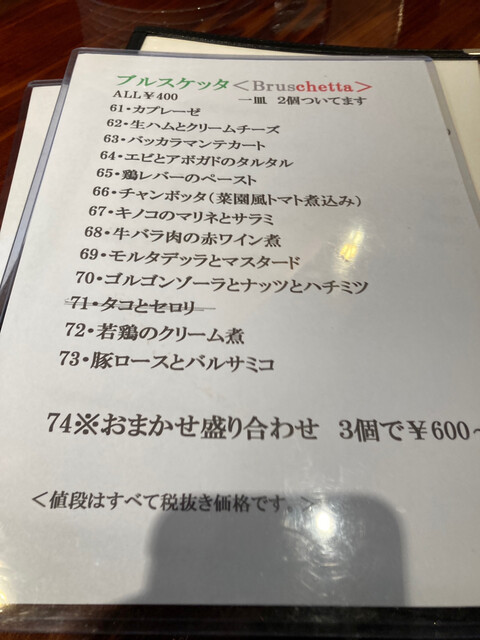 ブルスケッタ＜Bruschetta＞
ALL￥400 一皿 2個ついてます
61・カプレーゼ
62・生ハムとクリームチーズ
63・バッカラマンテカート
64・エビとアボガドのタルタル
65・鶏レバーのペースト
66・チャンボッタ（菜園風トマト煮込み）
67・キノコのマリネとサラミ
68・牛バラ肉の赤ワイン煮
69・モルタデッラとマスタード
70・ゴルゴンゾーラとナッツとハチミツ
71・タコとセロリ
72・若鶏のクリーム煮
73・豚ロースとバルサミコ
74※おまかせ盛り合わせ 3個で￥600～
＜値段はすべて税抜き価格です。＞